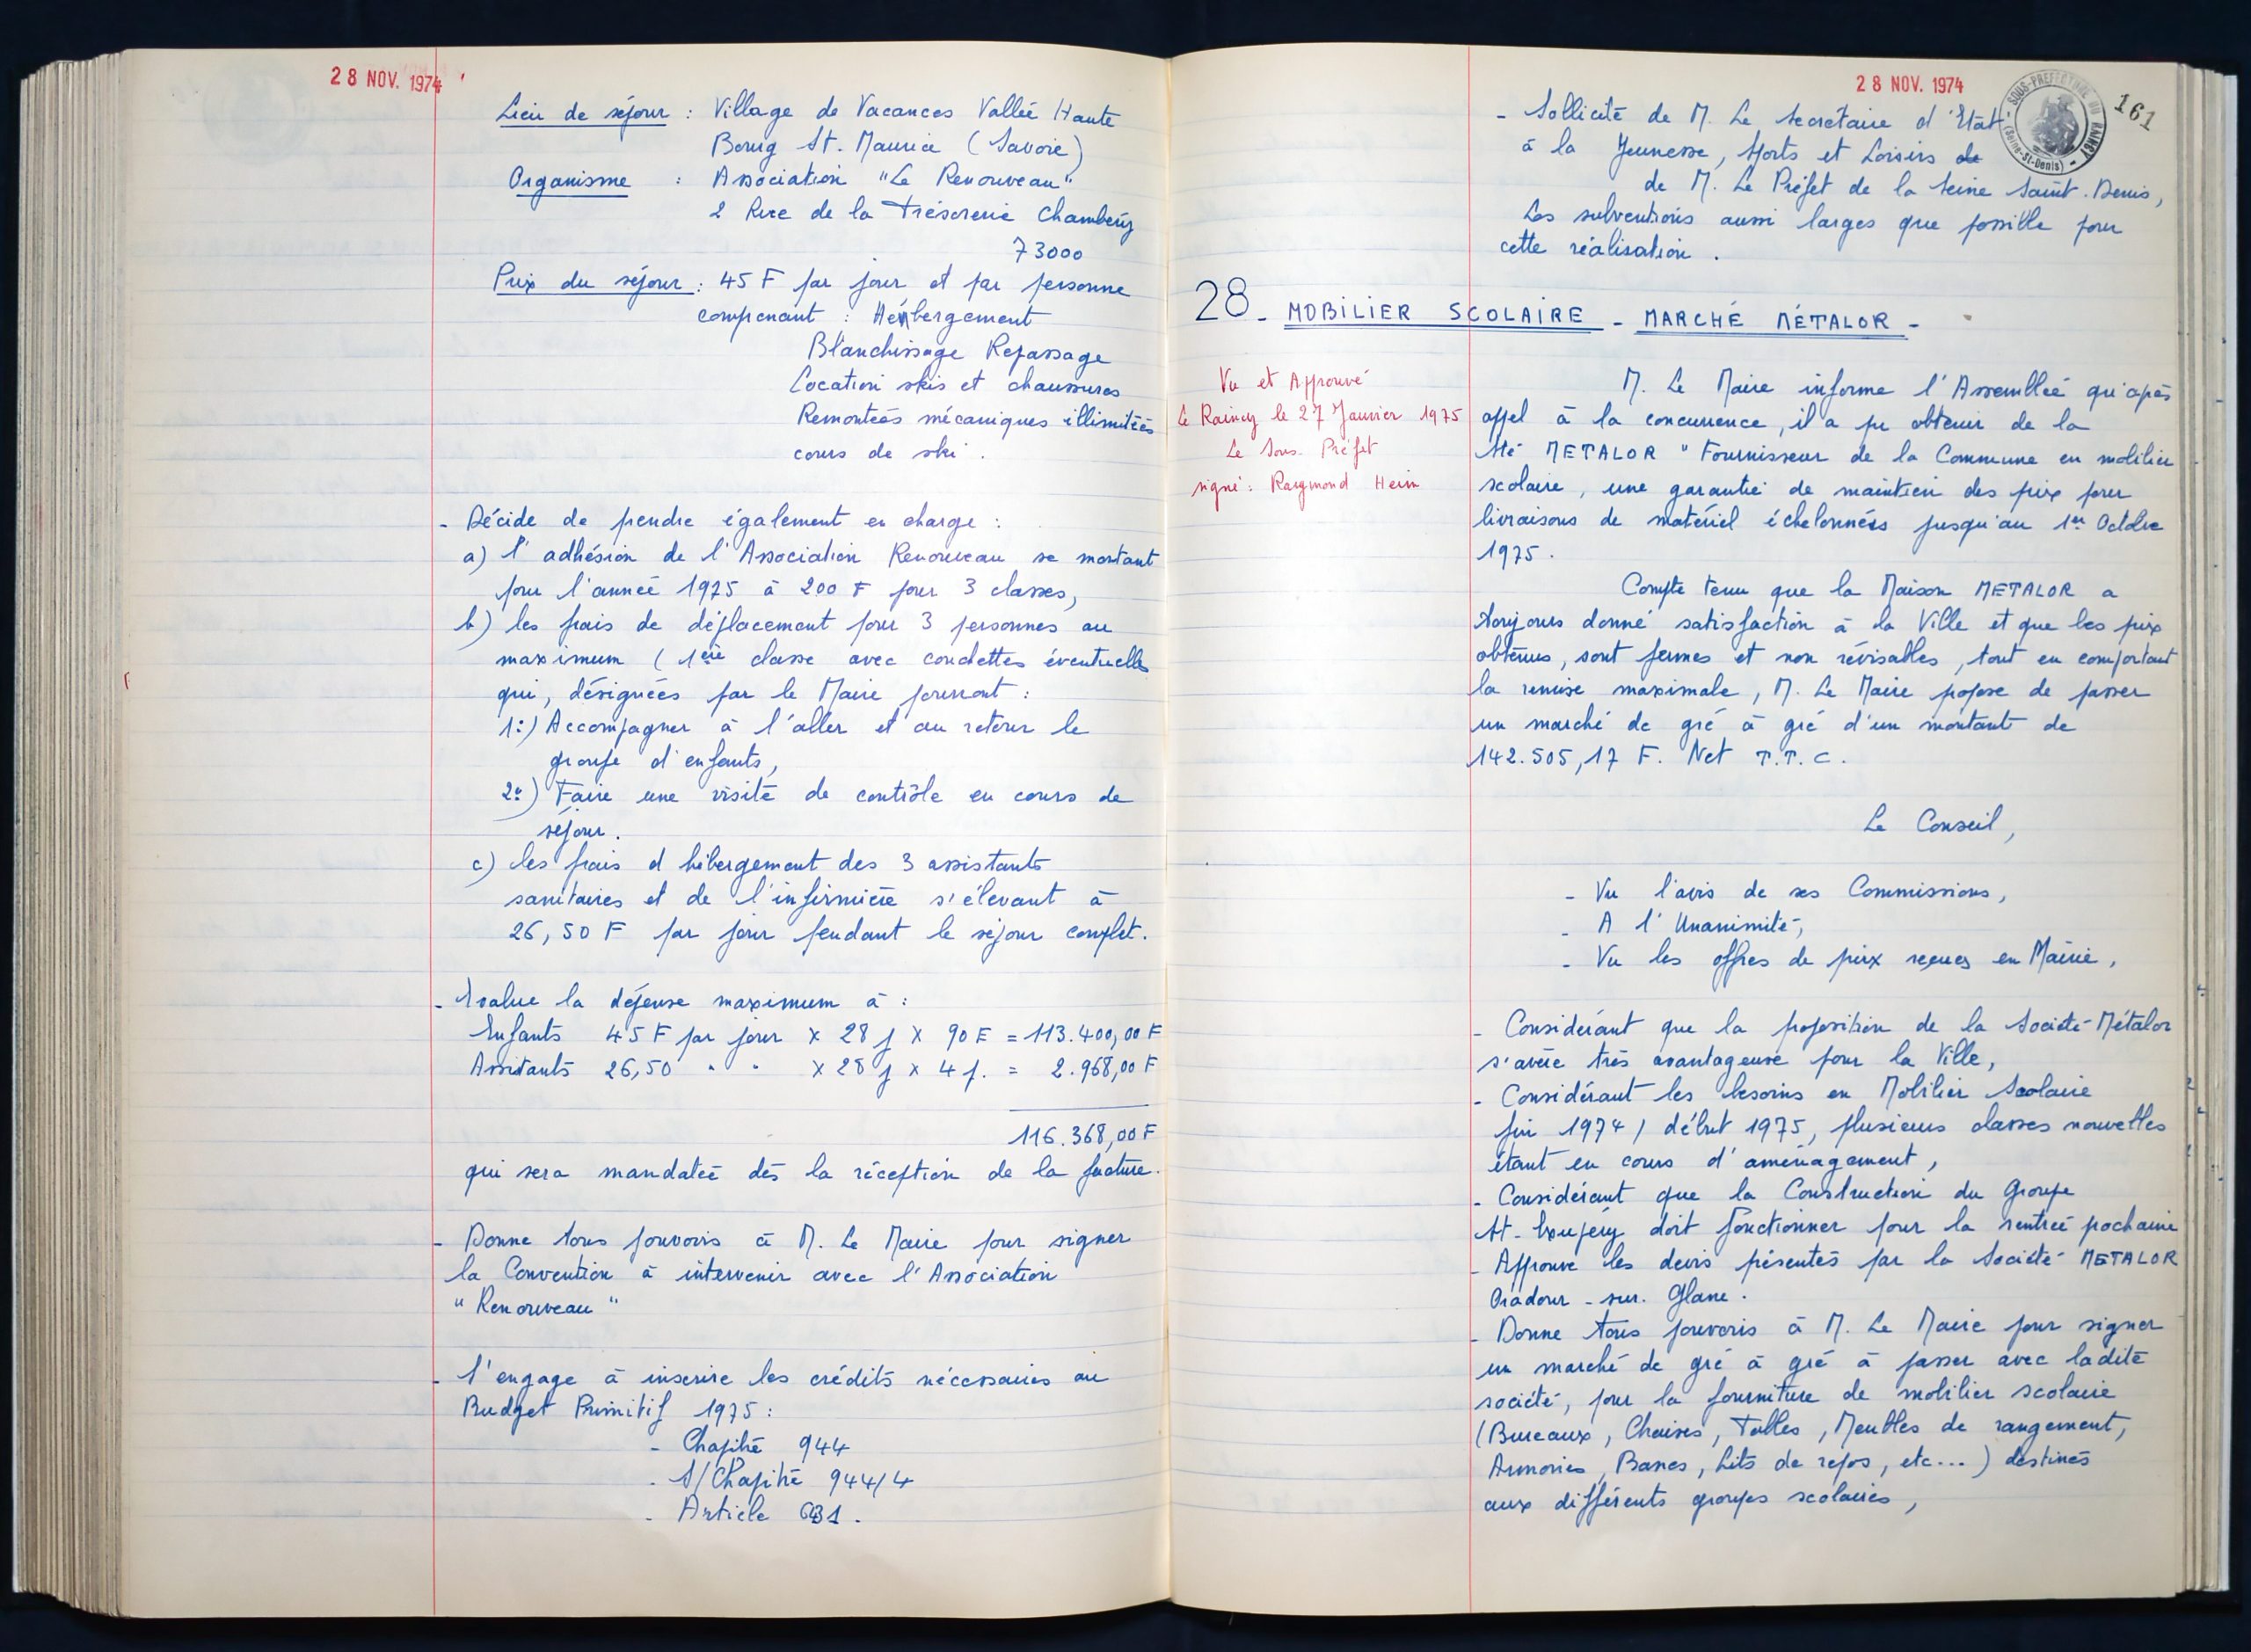 28 NOV. 1974
Lieu de séjour : Village de Vacances Vallée Haute
Bourg St. Maurice (Savoie)
Organisme : Association "Le Renouveau"
2 Rue de la Trésorerie Chambéry
73000
Prix du séjour : 45 F par jour et par personne
comprenant : Hébergement
Blanchissage Repassage
Location skis et chaussures
Remontées mécaniques illimitées
cours de ski.
- Décide de prendre également en charge :
a) l'adhésion de l'Association Renouveau se montant
pour l'année 1975 à 200 F pour 3 classes,
b) les frais de déplacement pour 3 personnes au
maximum (1ère classe avec couchettes éventuelles
qui, désignées par le Maire pourront :
1:) Accompagner à l'aller et au retour le
groupe d'enfants,
2e) Faire une visite de contrôle en cours de
séjour.
c) les frais d'hébergement des 3 assistants
sanitaires et de l'infirmière s'élevant à
26,50 F par jour pendant le séjour complet.
- Evalue la dépense maximum à :
Enfants 45 F par jour x 28 j x 90 E = 113.400,00 F
Assitants 26,50 " " x 28 j x 4 p. = 2.968,00 F
116.368,00 F
qui sera mandatée dès la réception de la facture.
- Donne tous pouvoirs à M. Le Maire pour signer
la Convention à intervenir avec l'Association
"Renouveau"
- S'engage à inscrire les crédits nécessaires au
Budget Primitif 1975 :
- Chapitre 944
- S/Chapitre 944/4
- Article 631.
28 NOV. 1974
SOUS-PREFECTURE DU RAINCY
(Seine-St-Denis)
161
- Sollicite de M. Le Secrétaire d'Etat
à la Jeunesse, Sports et Loisirs de
de M. Le Préfet de la Seine Saint-Denis,
Les subventions aussi larges que possible pour
cette réalisation.
28 - MOBILIER SCOLAIRE - MARCHÉ MÉTALOR -
Vu et Approuvé
Le Raincy le 27 Janvier 1975
Le Sous-Préfet
signé : Raymond Heim
M. Le Maire informe l'Assemblée qu'après
appel à la concurrence, il a pu obtenir de la
Sté METALOR " Fournisseur de la Commune en mobilier
scolaire, une garantie de maintien des prix pour
livraisons de matériel échelonnées jusqu'au 1er Octobre
1975.
Compte tenu que la Maison METALOR a
toujours donné satisfaction à la Ville et que les prix
obtenus, sont fermes et non révisables, tout en comportant
la remise maximale, M. Le Maire propose de passer
un marché de gré à gré d'un montant de
142.505,17 F. Net T.T.C.
Le Conseil,
- Vu l'avis de ses Commissions,
- A l'Unanimité,
- Vu les offres de prix reçues en Mairie,
- Considérant que la proposition de la Société Métalor
s'avère très avantageuse pour la Ville,
- Considérant les besoins en Mobilier Scolaire
fin 1974 / début 1975, plusieurs classes nouvelles
étant en cours d'aménagement,
- Considérant que la Construction du Groupe
St-Exupéry doit fonctionner pour la rentrée prochaine
- Approuve les devis présentés par la Société METALOR
Oradour-sur-Glane.
- Donne tous pouvoirs à M. Le Maire pour signer
un marché de gré à gré à passer avec ladite
société, pour la fourniture de mobilier scolaire
(Bureaux, Chaises, Tables, Meubles de rangement,
Armoires, Bancs, Lits de repos, etc...) destinés
aux différents groupes scolaires,